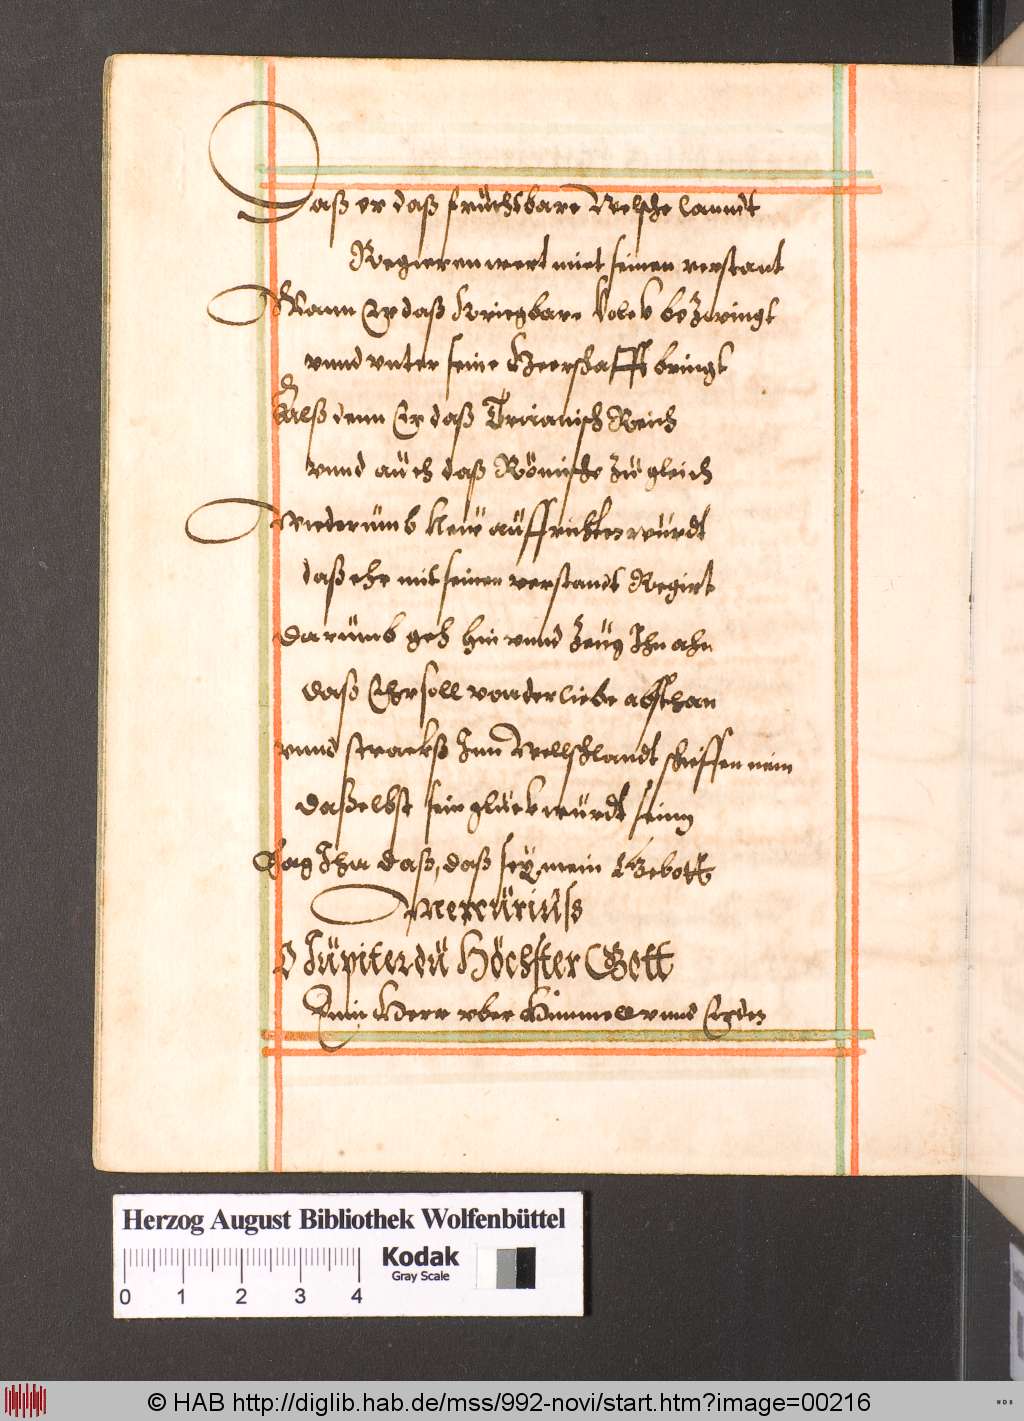 Daß er daß früchtbare Welsche lanndt
Regieren wert miet seinen verstant
Wann Er daß Kriegbare Volck bezwingt
vnnd vnter seine Heerschafft bringt
Alß denn Er daß Troianisch Reich
vnnd aüch daß Römische zü gleich
Wiederümb Neüw aüffrichten würdt
daß ehr mit seinen verstandt Regirt
darümb geh hin vnnd zeüg Ihn ahn
daß Ehr soll von der liebe absthan
vnnd strackß Inn Wellschlandt schieffen nein
daßelbst sein glück würdt seinn
Sag Ihn daß, daß seÿ mein Gebott
Mercüriüss
O Jüpiter dü Höchster Gott
Einn Herr vber Himmel vnnd Erden
Herzog August Bibliothek Wolfenbüttel
Kodak
Gray Scale
0 1 2 3 4
© HAB http://diglib.hab.de/mss/992-novi/start.htm?image=00216